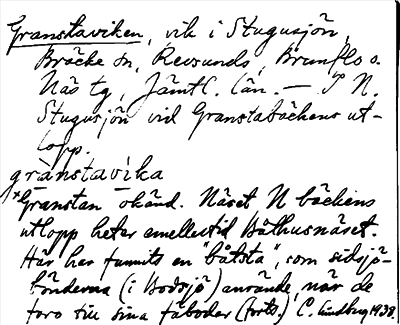 Granstaviken, vik i Stugusjön,
Bräcke sn, Revsunds, Brunflo o.
Näs tg, Jämtl. län. — I N.
Stugusjön vid Granstabäckens ut-
lopp.
grànstavìka
*Granstan okänd. Näset N bäckens
utlopp heter emellertid Båthusnäset.
Här har funnits en "båtsta", som sidsjö-
bönderna (i Bodsjö) använde, när de
foro till sina fäbodar (forts.) C. Lindberg 1938